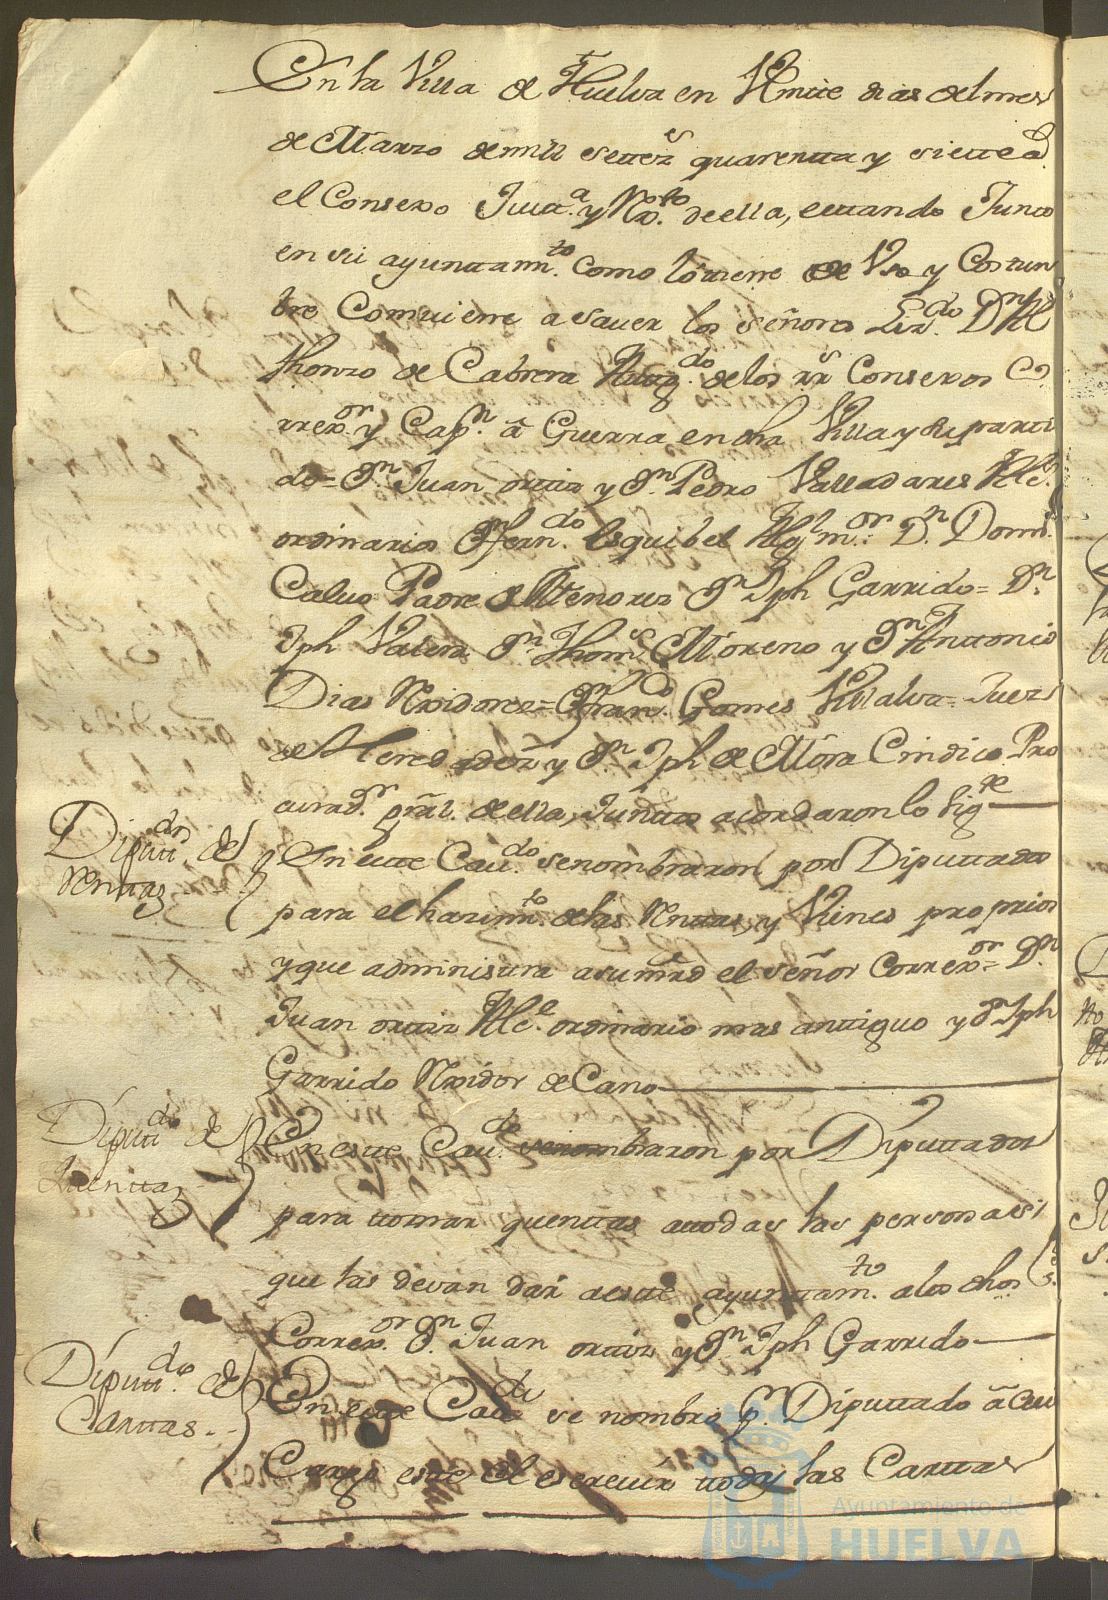 En la Villa de Huelva en Veinte dias del mes
de Marzo de mill settes quarentta y siette as
el Consexo Justta. y Rexto. de ella, estando Juntos
en su ayunttamto. como lo tiene de Uso y Costum
bre Combiene a saver los señores Lizdo. Dn. Al
fhonso de Cabrera Abogdo. de los rrs Consexos Co
rrexor. y Capn. â Guerra en dha Villa y su parti
do = Dn. Juan orttiz y Dn. Pedro Valladares Alcs.
ordinarios Dn ferndo. Esquibel Algl mor. Dn. Domo.
Calvo Padre de Menores Dn Jph Garrido = Dn.
Jph Valera Dn. Thoms Moreno y Dn Anttonio
Dias Rexidores = Dn Franco. Gomes Villalva = Juez
de Heredades y Dn. Jph de Mora Cindico Pro
curador. gral. de ella, Junttos acordaron lo sigte
Diputtdos. de
Renttas
En este Cavdo se nombraron por Diputtados
para el hazimto. de las Renttas, y Vienes proprios
y que administra a su md el señor Correxor = Dn.
Juan orttiz Alce. ordinario mas antiguo y Dn Jph
Garrido Rexidor de Cano
Diputtdos de
Quenttas
En este Cavdo. se nombraron por Diputtados
para ttomar quenttas a ttodas las personas
que las devan dar a este ayunttamto. a los dhos Ss.
Correxor. Dn. Juan orttiz y Dn Jph Garrido
Diputtdo. de
Carttas
En este Cavdo se nombro pr. Diputtado â cuio
Cargo este el escrevir ttodas las Carttas
Ayuntamiento de
HUELVA